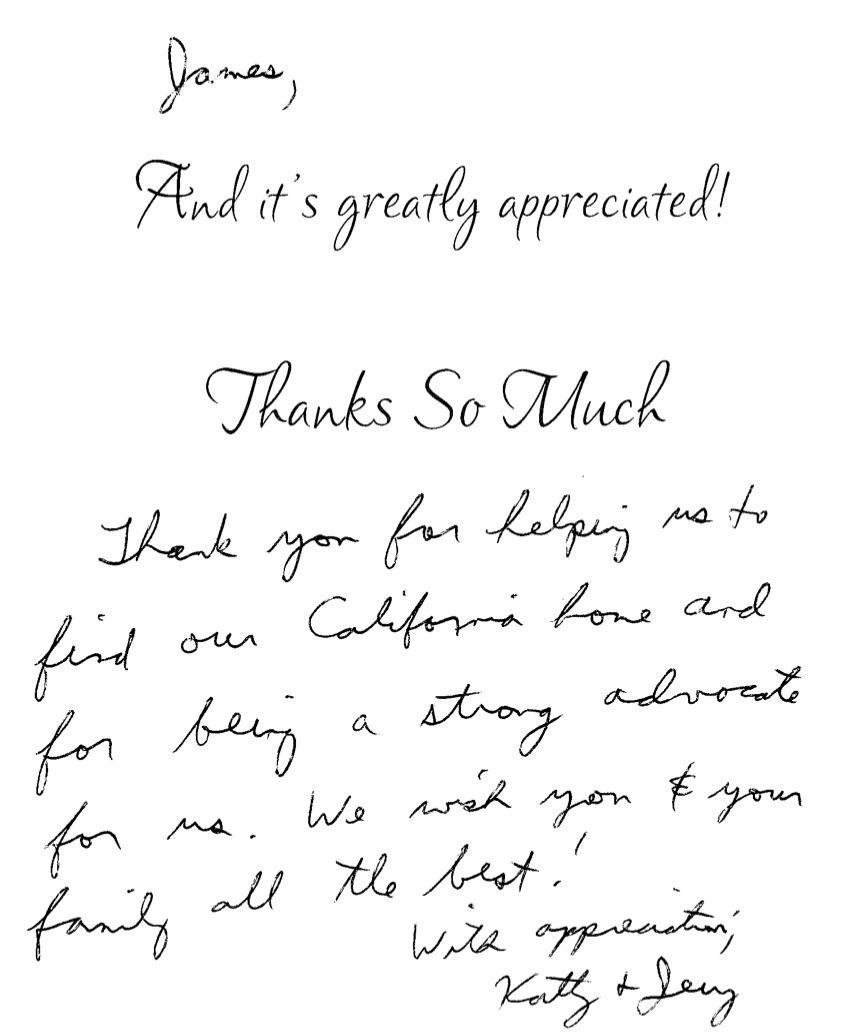 James,
And it's greatly appreciated!
Thanks So Much
Thank you for helping us to
find our California home and
for being a strong advocate
for us. We wish you & your
family all the best!
With appreciation,
Kathy + Jerry